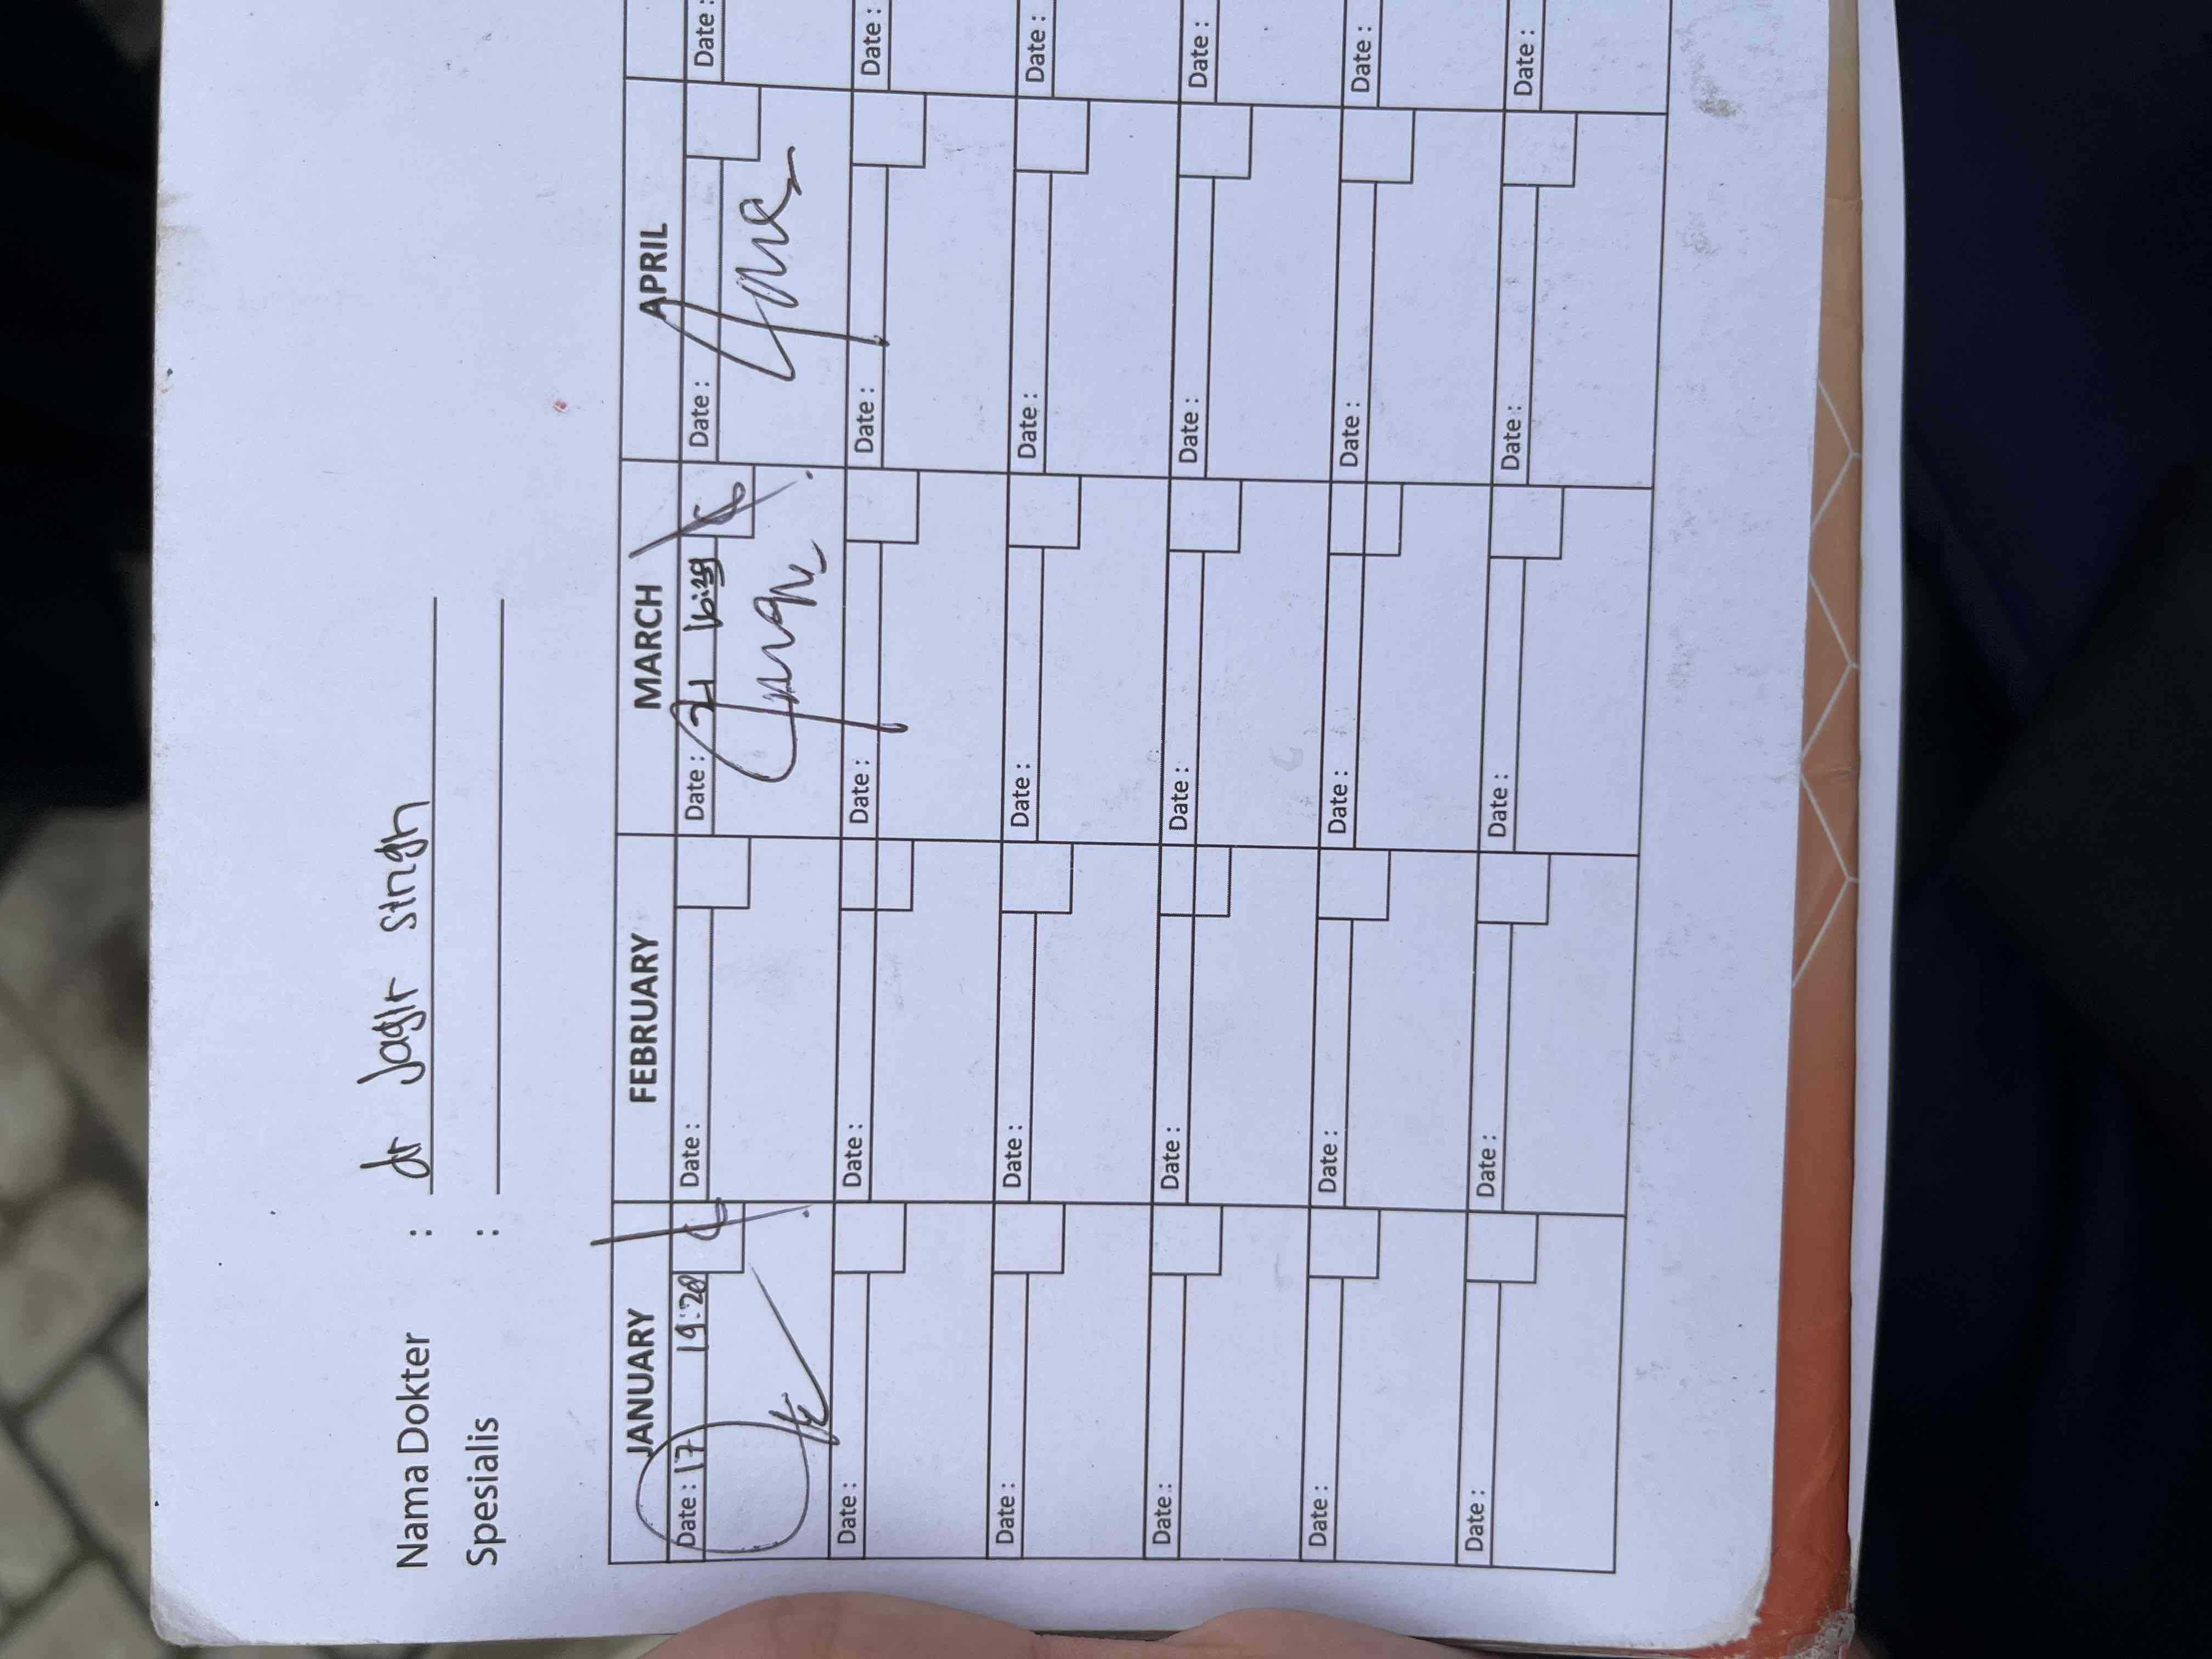 Nama Dokter : dr Jagir Singh
Spesialis :
JANUARY FEBRUARY MARCH APRIL
Date : 17 19:20 Date : Date : 21 16:28 Date : Date :
Date : Date : Date : Date : Date :
Date : Date : Date : Date : Date :
Date : Date : Date : Date : Date :
Date : Date : Date : Date : Date :
Date : Date : Date : Date : Date :